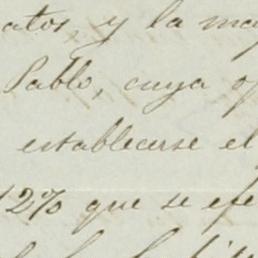 atos, y la may
Pablo, cuya op
establecerse el
12% que se efe